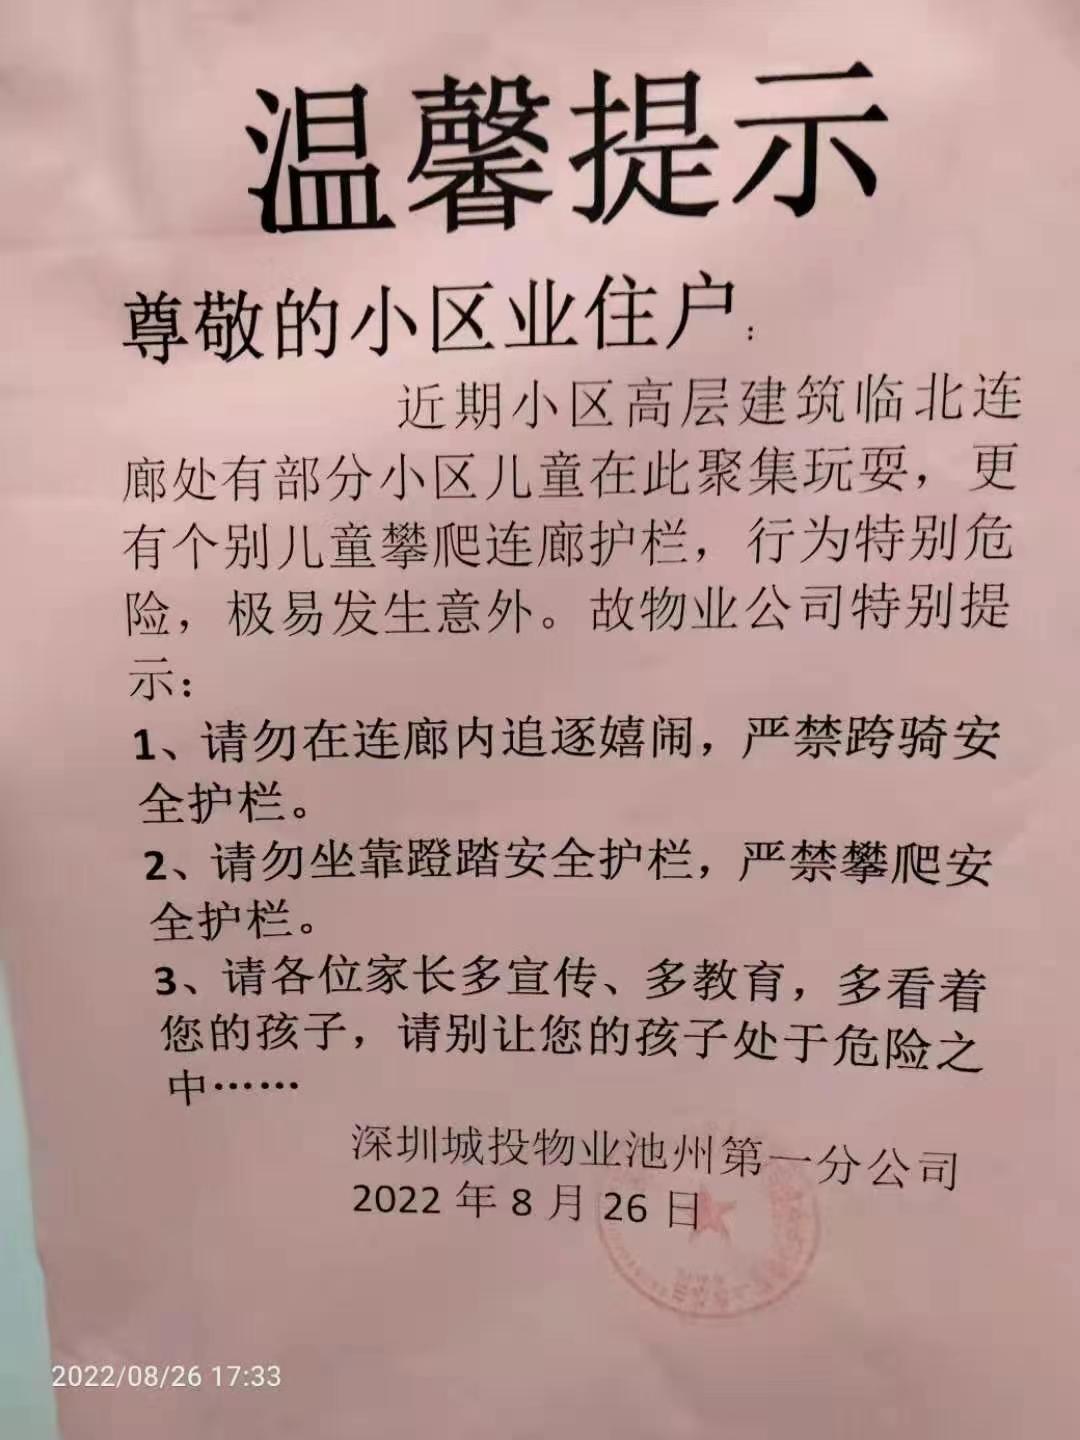 温馨提示
尊敬的小区业住户：
近期小区高层建筑临北连
廊处有部分小区儿童在此聚集玩耍，更
有个别儿童攀爬连廊护栏，行为特别危
险，极易发生意外。故物业公司特别提
示：
1、请勿在连廊内追逐嬉闹，严禁跨骑安
全护栏。
2、请勿坐靠蹬踏安全护栏，严禁攀爬安
全护栏。
3、请各位家长多宣传、多教育，多看着
您的孩子，请别让您的孩子处于危险之
中……
深圳城投物业池州第一分公司
2022 年 8 月 26 日
2022/08/26 17:33